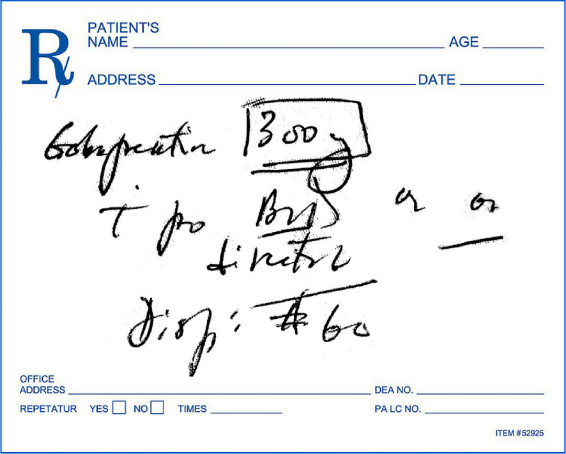 Rx
PATIENT'S
NAME AGE
ADDRESS DATE
Gabapentin 300
T po or as
directed
Disp: #60
OFFICE
ADDRESS DEA NO.
REPETATUR YES NO TIMES PA LC NO.
ITEM #52925